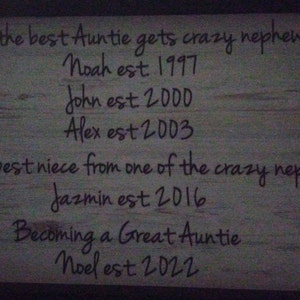 the best Auntie gets crazy nephew
Noah est 1997
John est 2000
Alex est 2003
best niece from one of the crazy nep
Jazmin est 2016
Becoming a Great Auntie
Noel est 2022